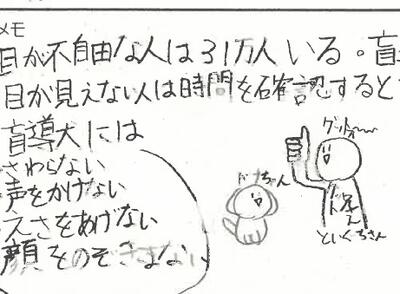 メモ
目が不自由な人は31万人いる。盲
目が見えない人は時間を確認すると
盲導犬には
さわらない
声をかけない
えさをあげない
顔をのぞきこまない
ドナちゃん